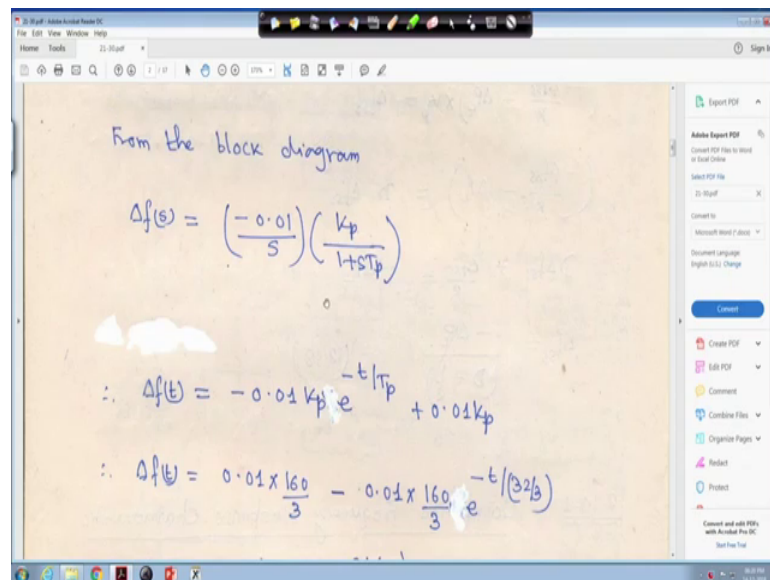 21-30.pdf - Adobe Acrobat Reader DC
File Edit View Window Help
Home Tools 21-30.pdf × Sign In
7 / 17 175%
From the block diagram
Δf(s) = (-0.01/S) (Kp/1+STp)
∴ Δf(t) = -0.01 Kp e^{-t/Tp} + 0.01Kp
∴ Δf(t) = 0.01 × 160/3 - 0.01 × 160/3 e^{-t/(32/3)}
Export PDF
Adobe Export PDF
Convert PDF Files to Word
or Excel Online
Select PDF File
21-30.pdf ×
Convert to
Microsoft Word (*.docx)
Document Language:
English (U.S.) Change
Convert
Create PDF
Edit PDF
Comment
Combine Files
Organize Pages
Redact
Protect
Convert and edit PDFs
with Acrobat Pro DC
Start Free Trial